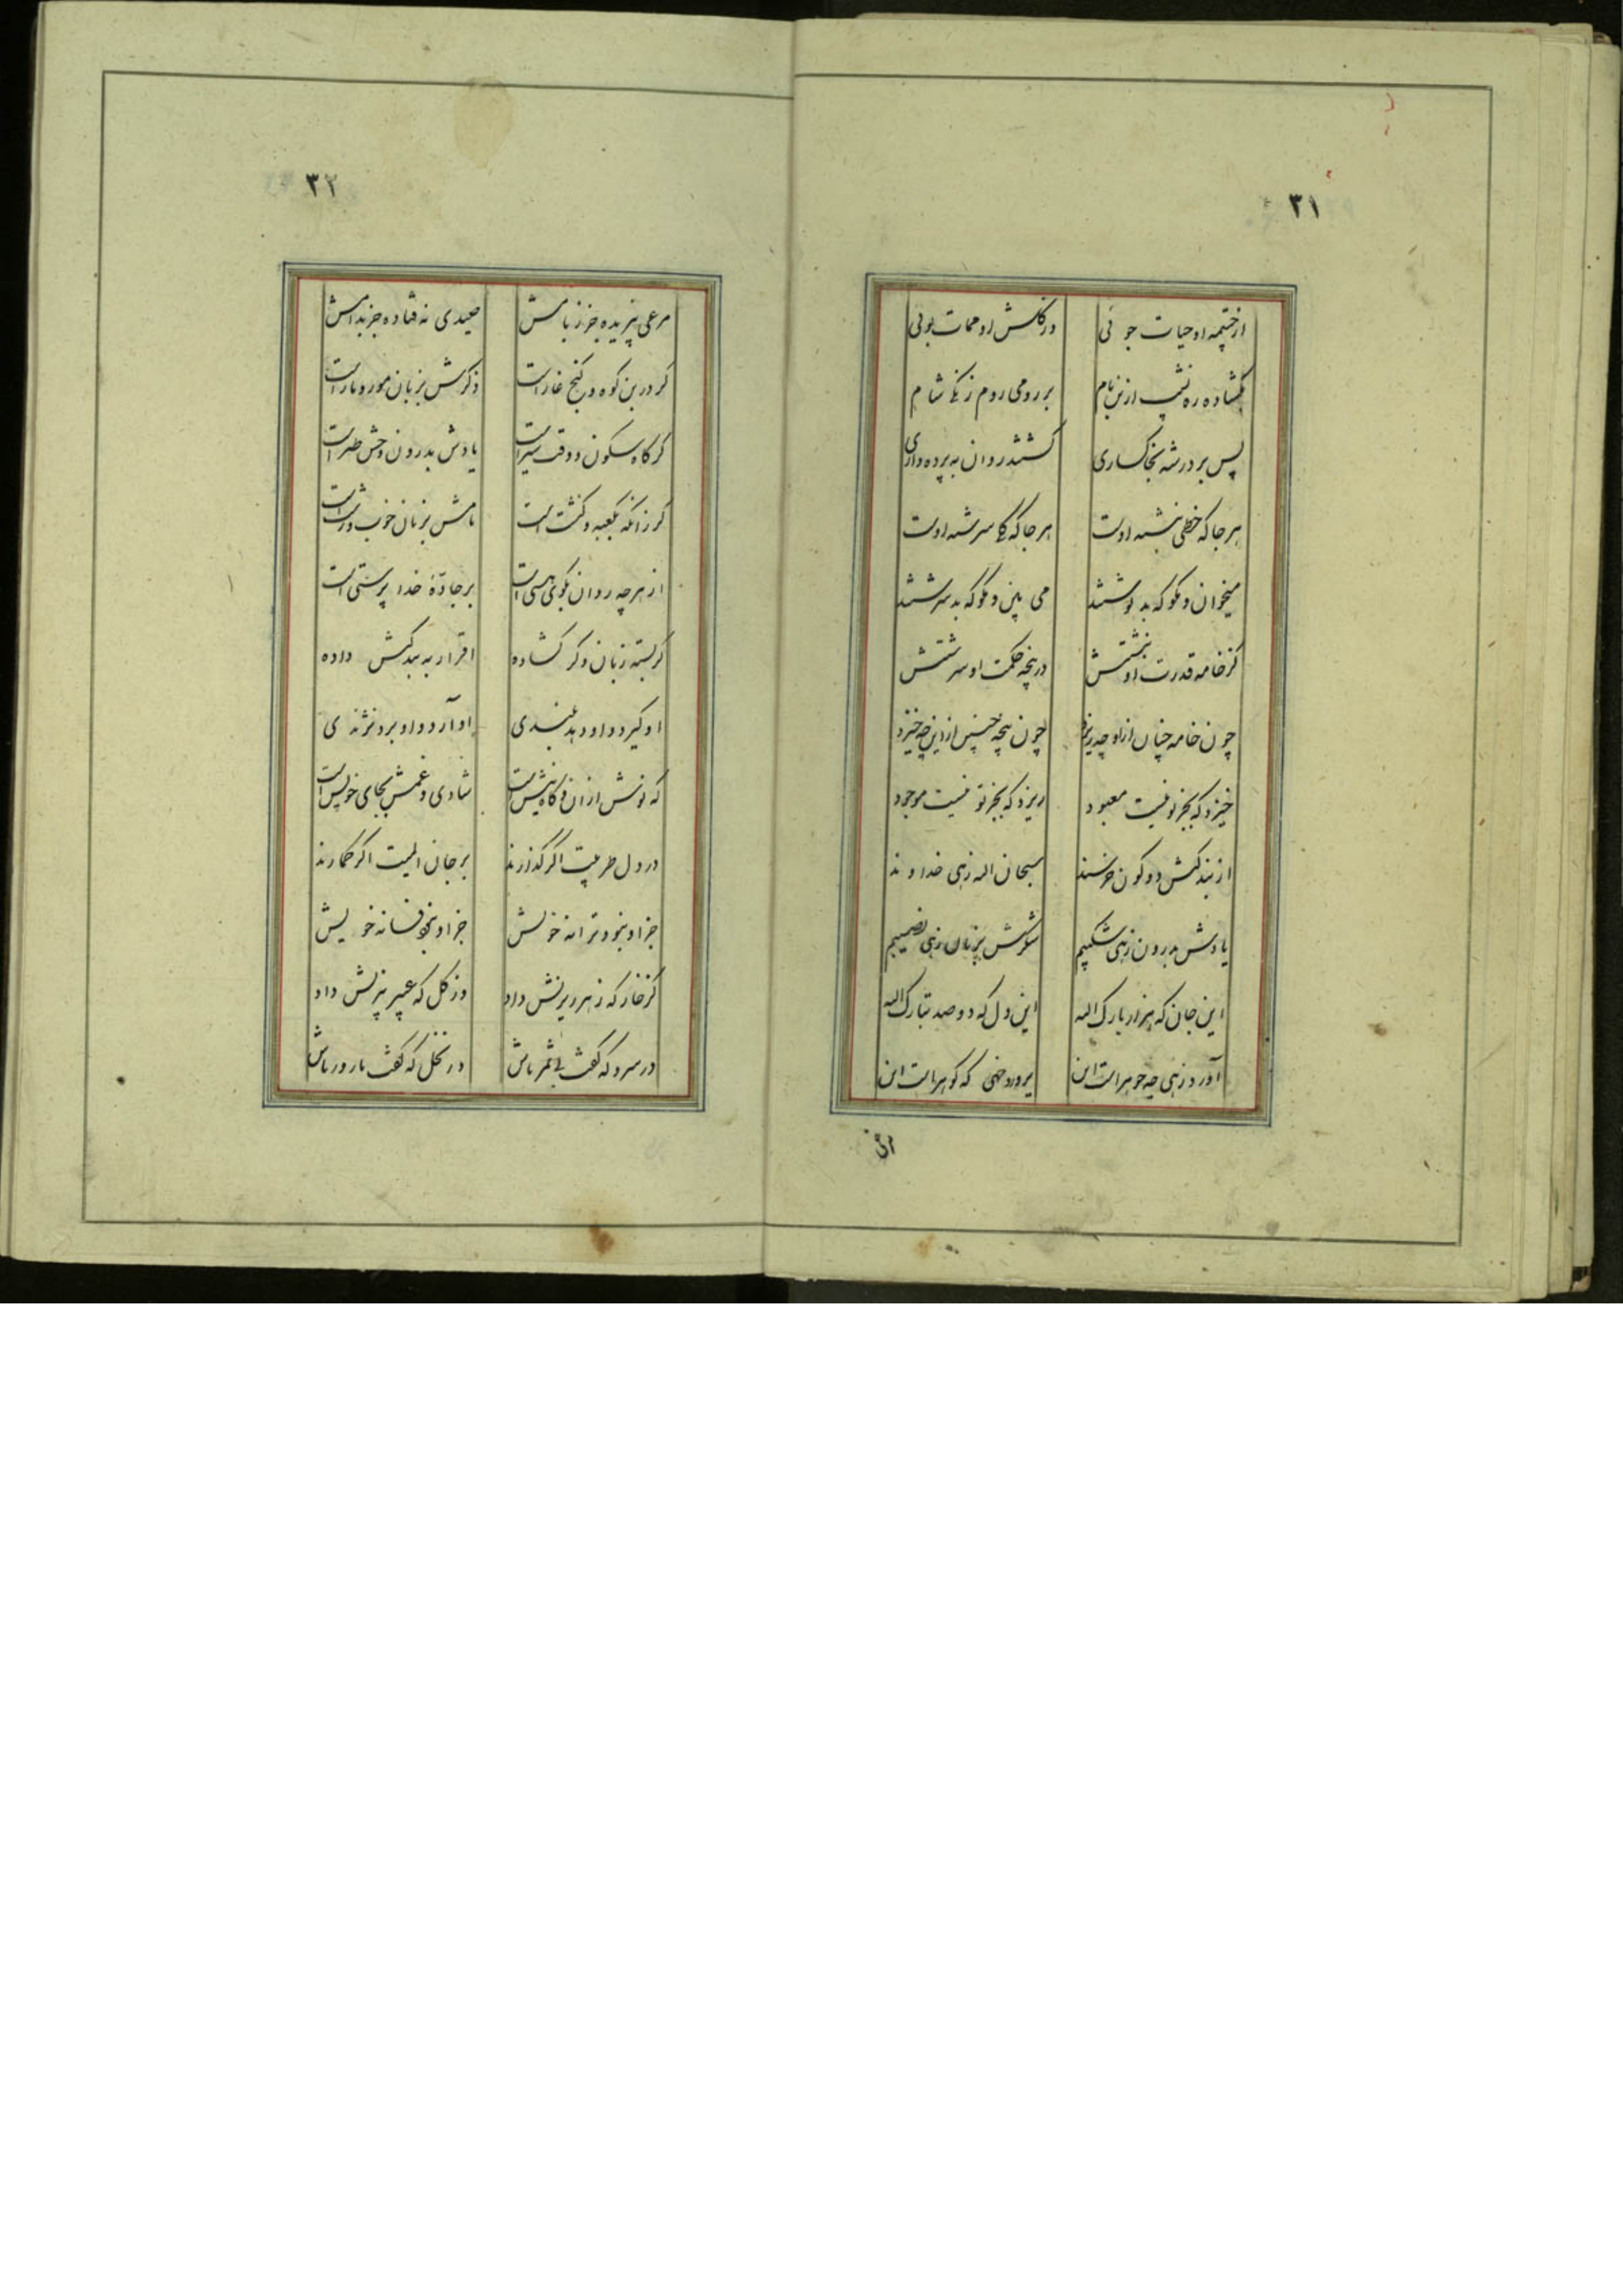 ۳۱
از چشمه او حیات جوئی
بگشاده ره شب ازین بام
بر رومی روم زنگی شام
پس بر در شه بخاکساری
گشتند روان به پرده داری
هر جا که خطی نبشته اوست
هر جا که گلی سرشته اوست
میخوان و مگو که بد نوشتند
می بین و مگو که بد سرشتند
کز خامه قدرت او نبشتش
در پنجه حکمت او سرشتش
چون خامه چنان از او چه ریزد
چون پنجه چنین ازین چه خیزد
خیزد که بجز تو نیست معبود
ریزد که بجز تو نیست موجود
از بندگیش دو کون خرسند
سبحان اله زهی خداوند
یادش بدرون زهی شکیبم
شکرش بزبان زهی نصیبم
این جان که هزار بارک اله
این دل که دو صد تبارک اله
آورد زهی چه جوهر است این
پرورد خهی که گوهر است این
۳۲
مرغی نپریده جز ز بامش
صیدی نه فتاده جز بدامش
گر در بن کوه و کنج غار است
ذکرش بزبان مور و مار است
گر گاه سکون و وقت سیر است
یادش بدرون وحش و طیر است
گر زانکه بکعبه و کنشت است
نامش بزبان خوب و زشت است
از هرچه روان بکوی هستی است
بر جادهٔ خدا پرستی است
گر بسته زبان و گر گشاده
اقرار به بندگیش داده
او گیرد و او دهد بلندی
او آرد و او برد نژندی
که نوشش از ان و گاه نیش است
شادی و غمش بجای خویش است
در دل طربیت اگر گذارند
بر جان المیت اگر گمارند
جز او بخود ترانه خویش
جز او بخود فسانه خویش
کز خار که زهر ریزیش داد
وز گل که عبیر بیزیش داد
در سرو که گفت بی ثمر باش
در نخل که گفت بارور باش